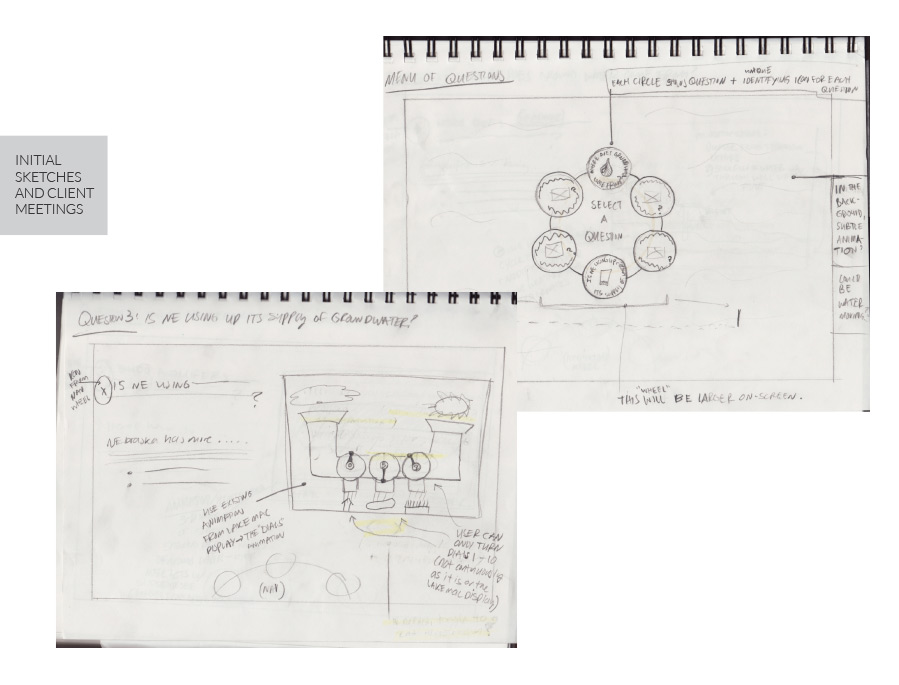 INITIAL
SKETCHES
AND CLIENT
MEETINGS
MENU OF QUESTIONS
UNIQUE
EACH CIRCLE QUESTION + IDENTIFYING ICON FOR EACH
QUESTION
SELECT
A
QUESTION
IS NE USING UP ITS SUPPLY
?
?
?
?
IN THE
BACK-
GROUND,
SUBTLE
ANIMA-
TION?
COULD
BE
WATER
MOVING?
"WHEEL"
THIS WILL BE LARGER ON-SCREEN.
QUESION 3: IS NE USING UP ITS SUPPLY OF GROUNDWATER?
FROM
NAV
WHEEL
X
IS NE USING
?
NEBRASKA HAS MORE .....
USE EXISTING
ANIMATION
FROM LAKE MAC
DISPLAY → THE "DIALS"
ANIMATION
USER CAN
ONLY TURN
DIALS 1-10
(NOT CONTINUOUSLY
AS IT IS ON THE
LAKE MAC DISPLAY)
(NAV)